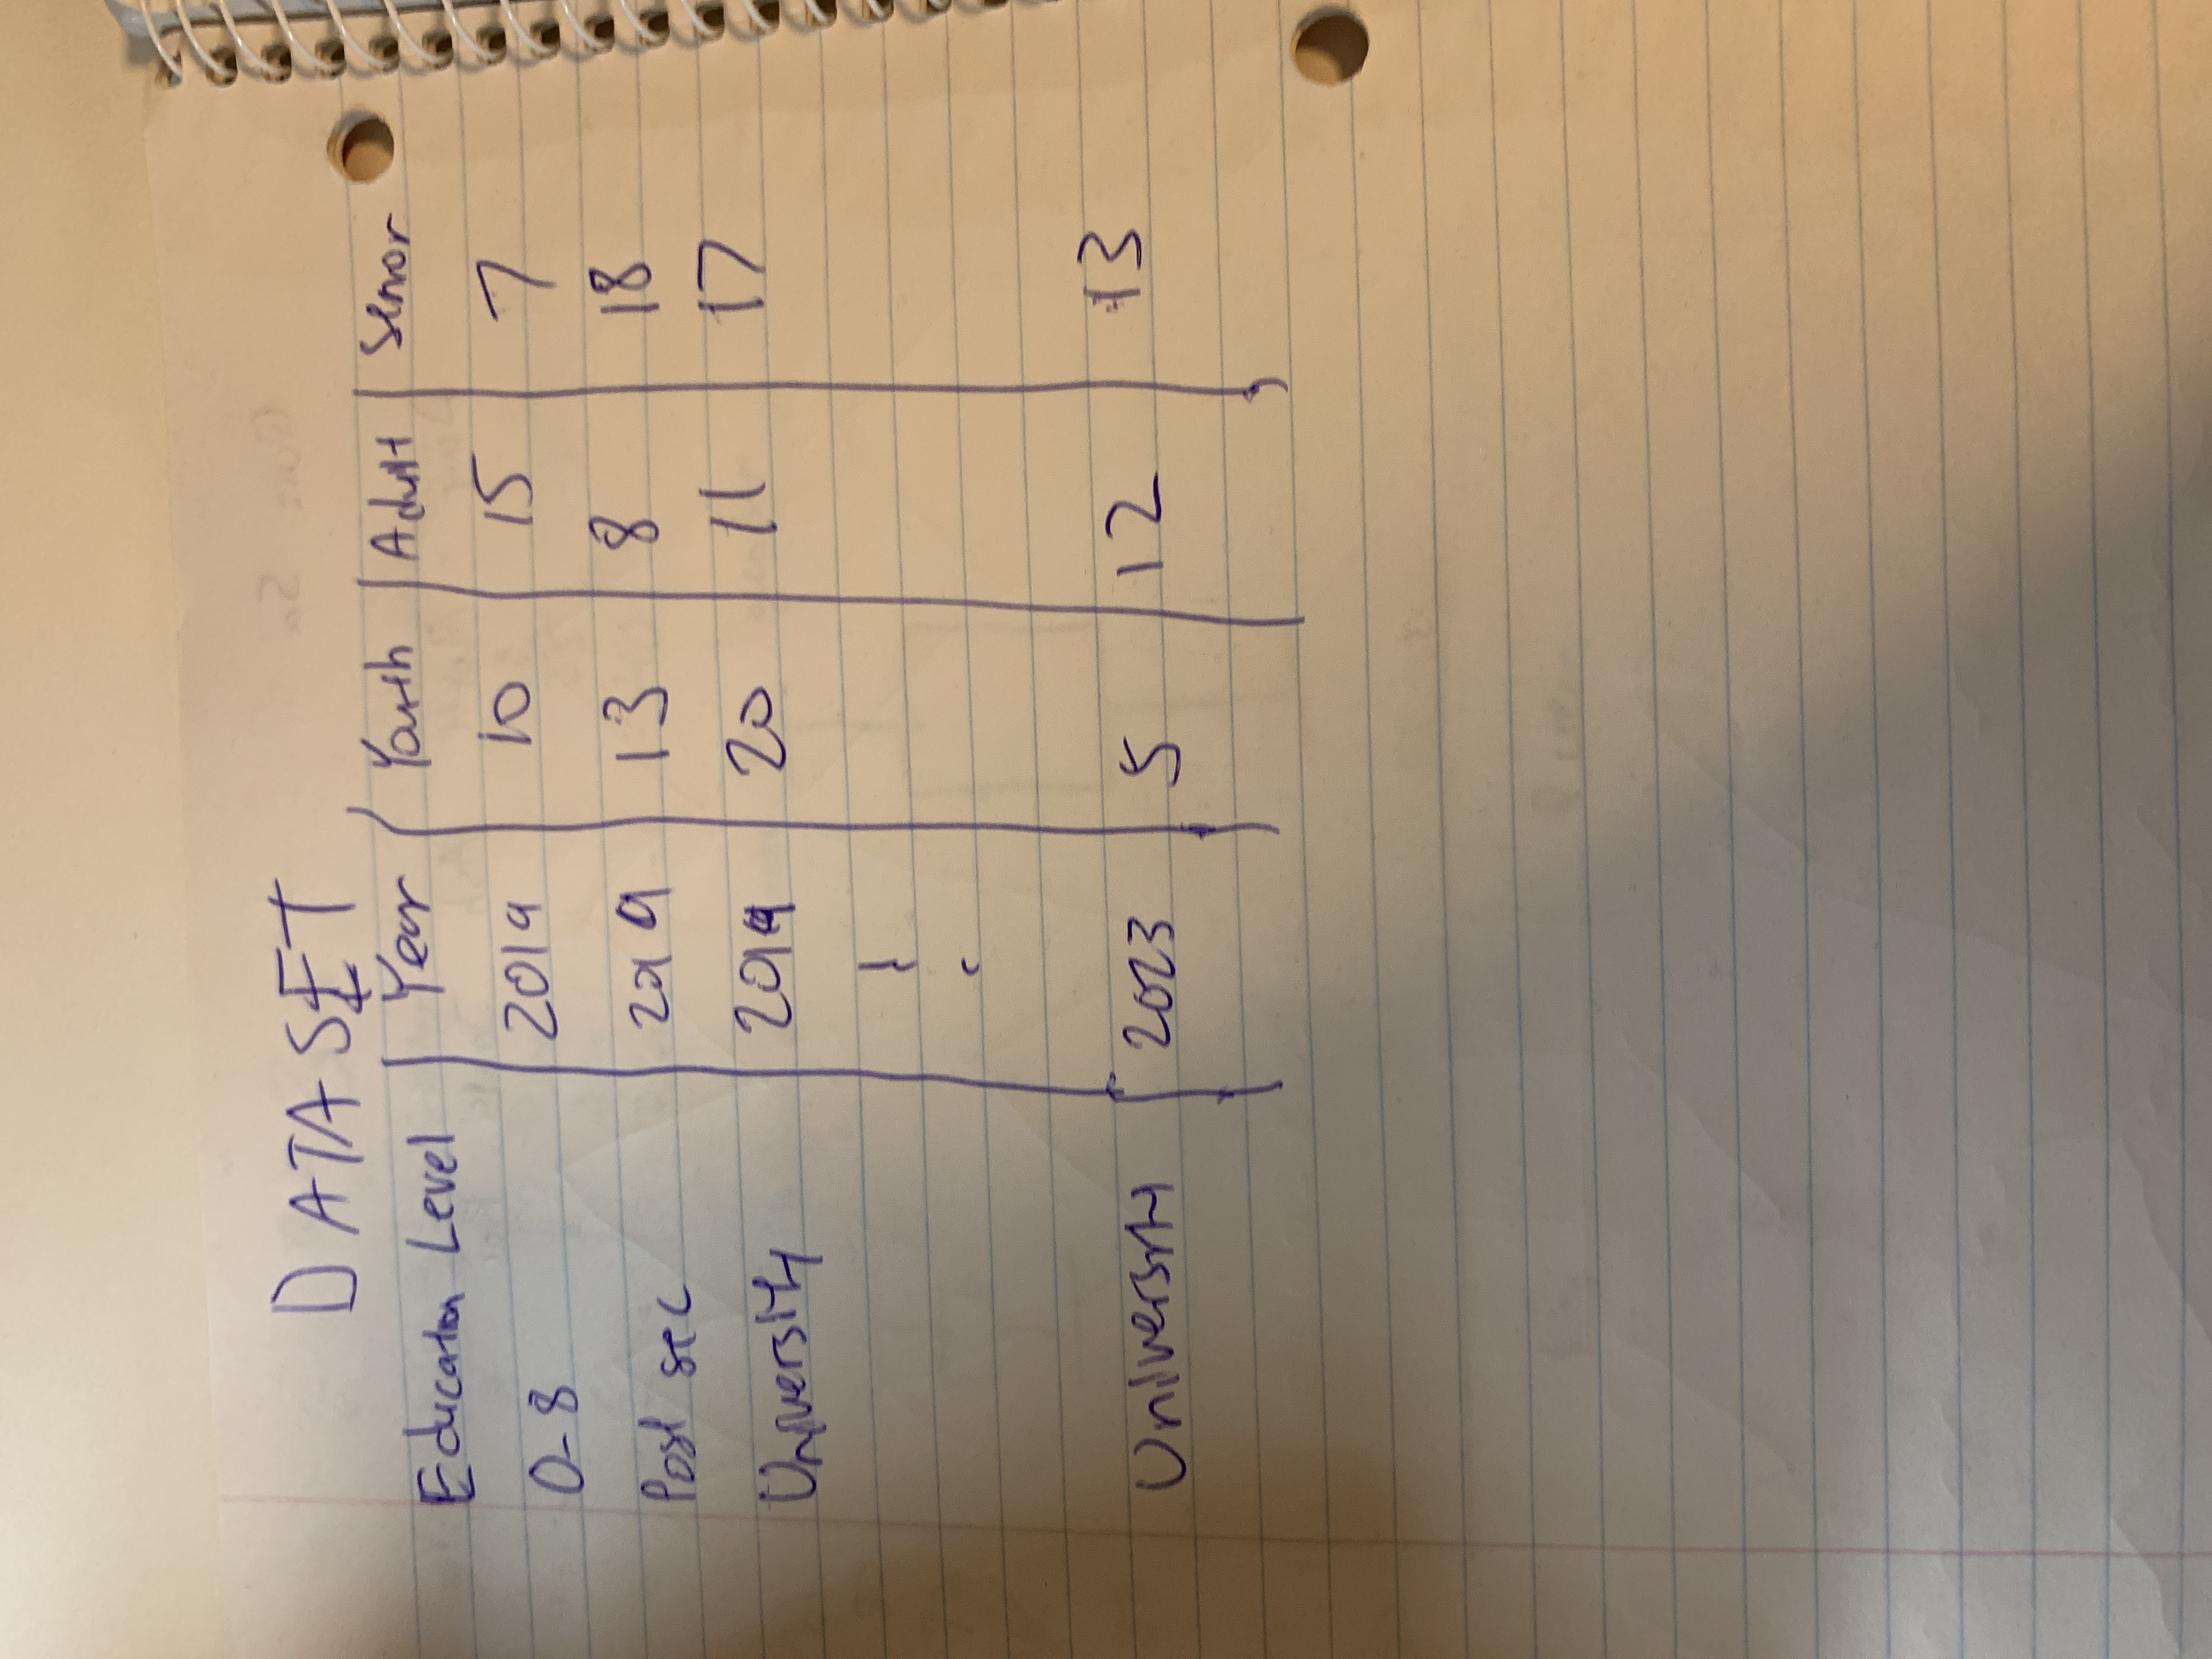 DATASET
Education Level Year Youth Adult Senior
0-8 2019 10 15 7
Post sec 2019 13 8 18
University 2019 20 11 17
University 2023 5 12 13